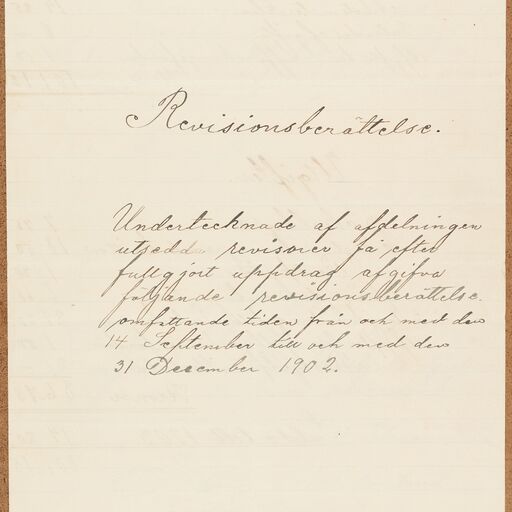 Revisionsberättelse.
Undertecknade af afdelningen
utsedda revisorer få efter
fullgjort uppdrag afgifva
följande revisionsberättelse.
omfattande tiden från och med den
14 September till och med den
31 December 1902.